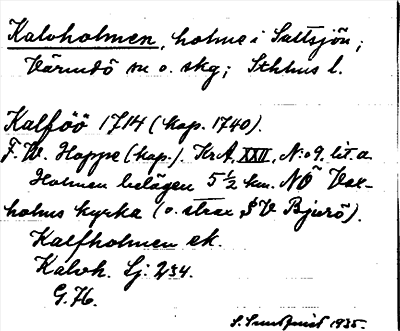 Kalvholmen, holme i Saltsjön;
Värmdö sn o. skg; Sthlms l.
Kalföö 1714 (kop. 1740).
F. W. Hoppe (kop.). KrA, XXII, N:o 9. lit. a
Holmen belägen 5 ½ km. NÖ Vax-
holms kyrka (o. strax SV Bjurö).
Kalfholmen ek.
Kalvh. Sj: 234.
G.H.
S. Sundquist 1935.